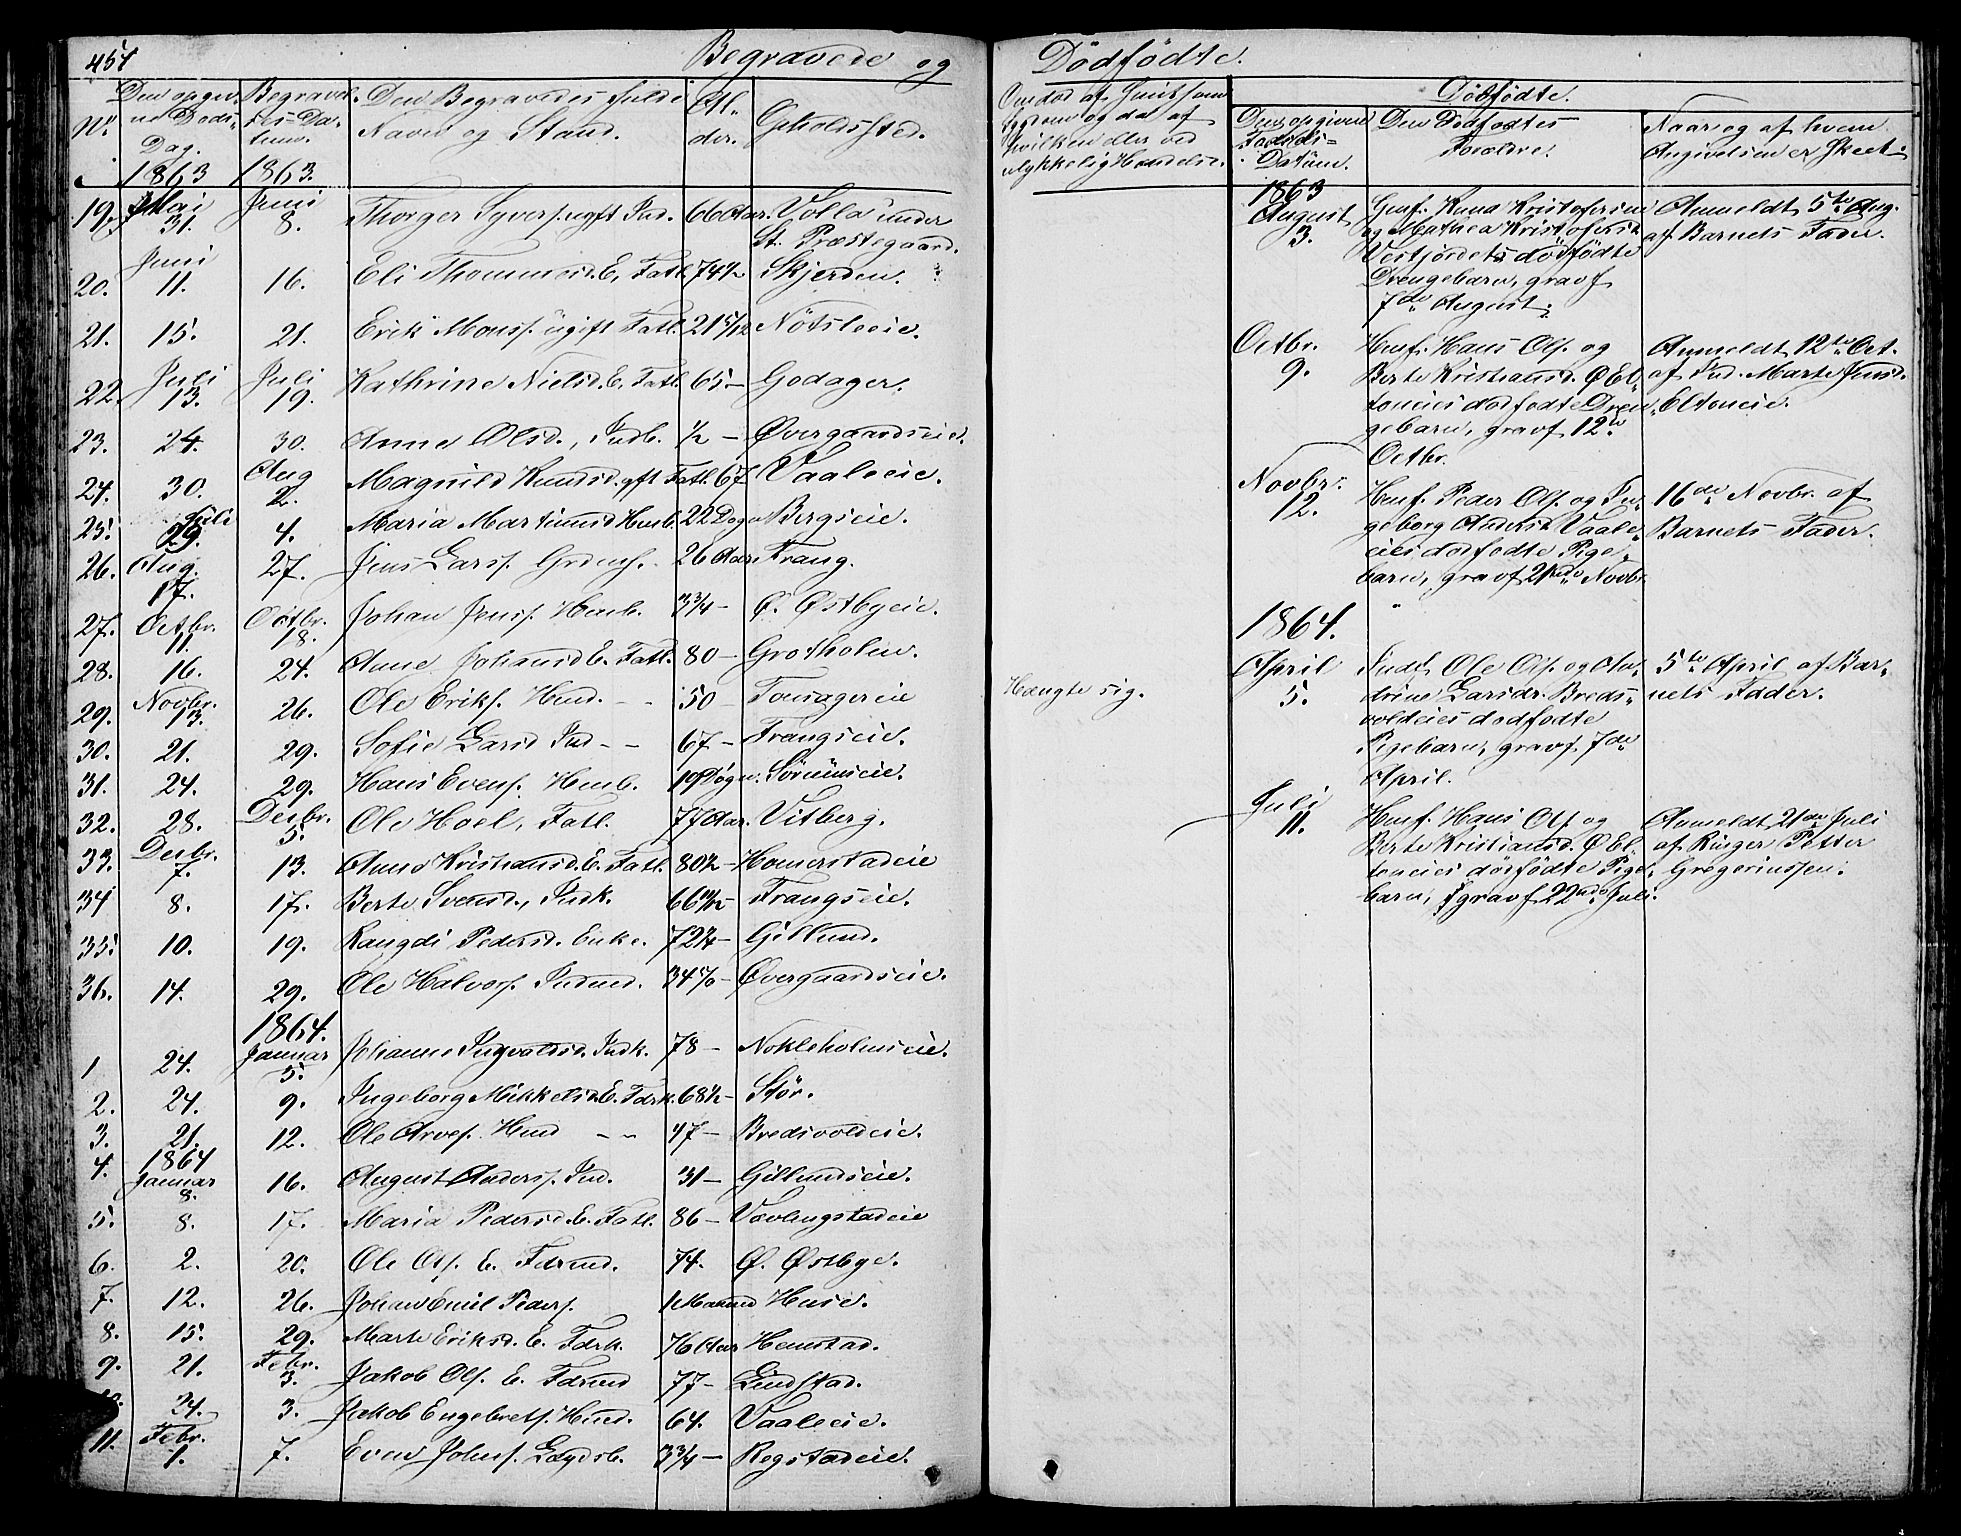 457
Begravede og
Nº
Den opgiv-
ne Døds-
Dag.
1863
Begravel-
ses-Da-
tum.
1863.
Den Begravedes fulde
Navn og Stand.
Al-
der.
Opholdssted.
19. Mai 31. Juni 8. Thorger Syvers. ugft Ind. 66 Aar. Volla under
St. Præstegaard.
20. Juni 11. 16. Eli Thommesd. E. Fatl. 74½ Skjerden.
21. 15. 21. Erik Monss. ugift Fatl. 21 5/12 Nötsleeie.
22. Juli 13. Juli 19. Kathrine Nielsd. E. Fatl. 65 – Godager.
23. 24. 30. Anne Olsd., Indb. ½ – Øvergaardseie.
24. 30. Aug 2. Magnild Knudsd. gft Fatl. 67 Vaaleeie.
25. Juli 29. 4. Maria Martinusd Husb. 22 Dage Bergseie.
26. Aug. 17. 27. Jens Larss. Grdmf. 26 Aar. Frang.
27. Octbr. 11. Octbr. 18. Johan Jenss. Husb. 3¾ – Ø. Østbyeie.
28. 16. 24. Anne Johansd. E. Fatl. 80 – Grotholen.
29. Novbr. 13. 26. Ole Eriks. Husd. – – 50 Tomagereie
30. 21. 29. Sofie Larsd Ind – – 67 – Frangseie.
31. 24. 29. Hans Evens. Husb. 19 Døgn. Sörumseie.
32. 28. Decbr. 5. Ole Hoel, Fatl. 77 Aar. Vitberg.
33. Decbr. 7. 13. Anne Kristiansd. E. Fatl. 80½ – Homerstadeie
34 8. 17. Berte Svensd., Indk. 66 – Frangseie.
35. 10. 19. Rangdi Pedersd. Enke. 72¼ – Gillund.
36. 14. 29. Ole Halvors. Indmd. 34 – Øvergaardseie.
1864.
1 24. Januar 5. Johanne Ingvaldsd. Indk. 78 – Nokleholmseie.
2. 24. 9. Ingeborg Mikkelsd. E. Fdrk. 68½ – Stör.
3. 21. 12. Ole Arves. Husd – – 47 – Bredsvoldeie.
4. 1864 Januar 8. 16. August Anders. Ind. 31 – Gillundseie.
5. 8. 17. Maria Pedersd. E. Fatl. 86 – Vævlingstadeie
6. 2. 20. Ole Ols. E. Fdrmd. 74. Ø. Østbye.
7. 12. 26. Johan Emil Peders. 1 Maaned Huse.
8. 15. 29. Marte Eriksd. E. Fdrk. 76 Aar Hemstad.
9. 21. Febr. 3. Jakob Ols. E. Fdrmd 77 – Lindstad.
24. 3. Jakob Engebrets. Husd. 64. Vaaleeie.
11. Febr. 1. 7. Even Johns. Lægdsb. 3¾ – Rogstadeie.
Dödfödte.
Om død af Smitsom
Sygdom og da af
hvilken eller ved
ulykkelig Hændelse.
Hængte sig.
Dödfödte.
Den opgivne
Födsels-
Datum.
Den Dödfödtes
Forældre.
Naar og af hvem
Angivelsen er skeet.
1863
August 3.
Husf. Knud Kristofersen
og Mathea Kristofersd.
Vestjordets dödfödte
Drengebarn, gravf
7de August.
Anmeldt 5te Aug.
af Barnets Fader.
Octbr. 9.
Husf. Hans Ols. og
Berte Kristiansd. Ø El-
toneies dodfodte Dren-
gebarn, gravf 12te
Octbr.
Anmeldt 12te Oct.
af Ind. Marte Jensd.
Eltoneie.
Novbr. 12.
Husf. Peder Ols. og In-
geborg Andersd. Vaale-
eies dodfodte Pige-
barn, gravf 21de Novbr
16de Novbr. af
Barnets Fader.
1864.
April 5.
Indf. Ole Ols. og An-
drine Larsdr. Breds-
voldeies dodfodte
Pigebarn, gravf. 7de
April.
5te April af Bar-
nets Fader.
Juli 11.
Husf. Hans Ols. og
Berte Kristiansd. Ø El-
toneies dödfödte Pige-
barn, gravf 22de Juli.
Anmeldt 21de Juli
af Ringer Petter
Gregeriussen.